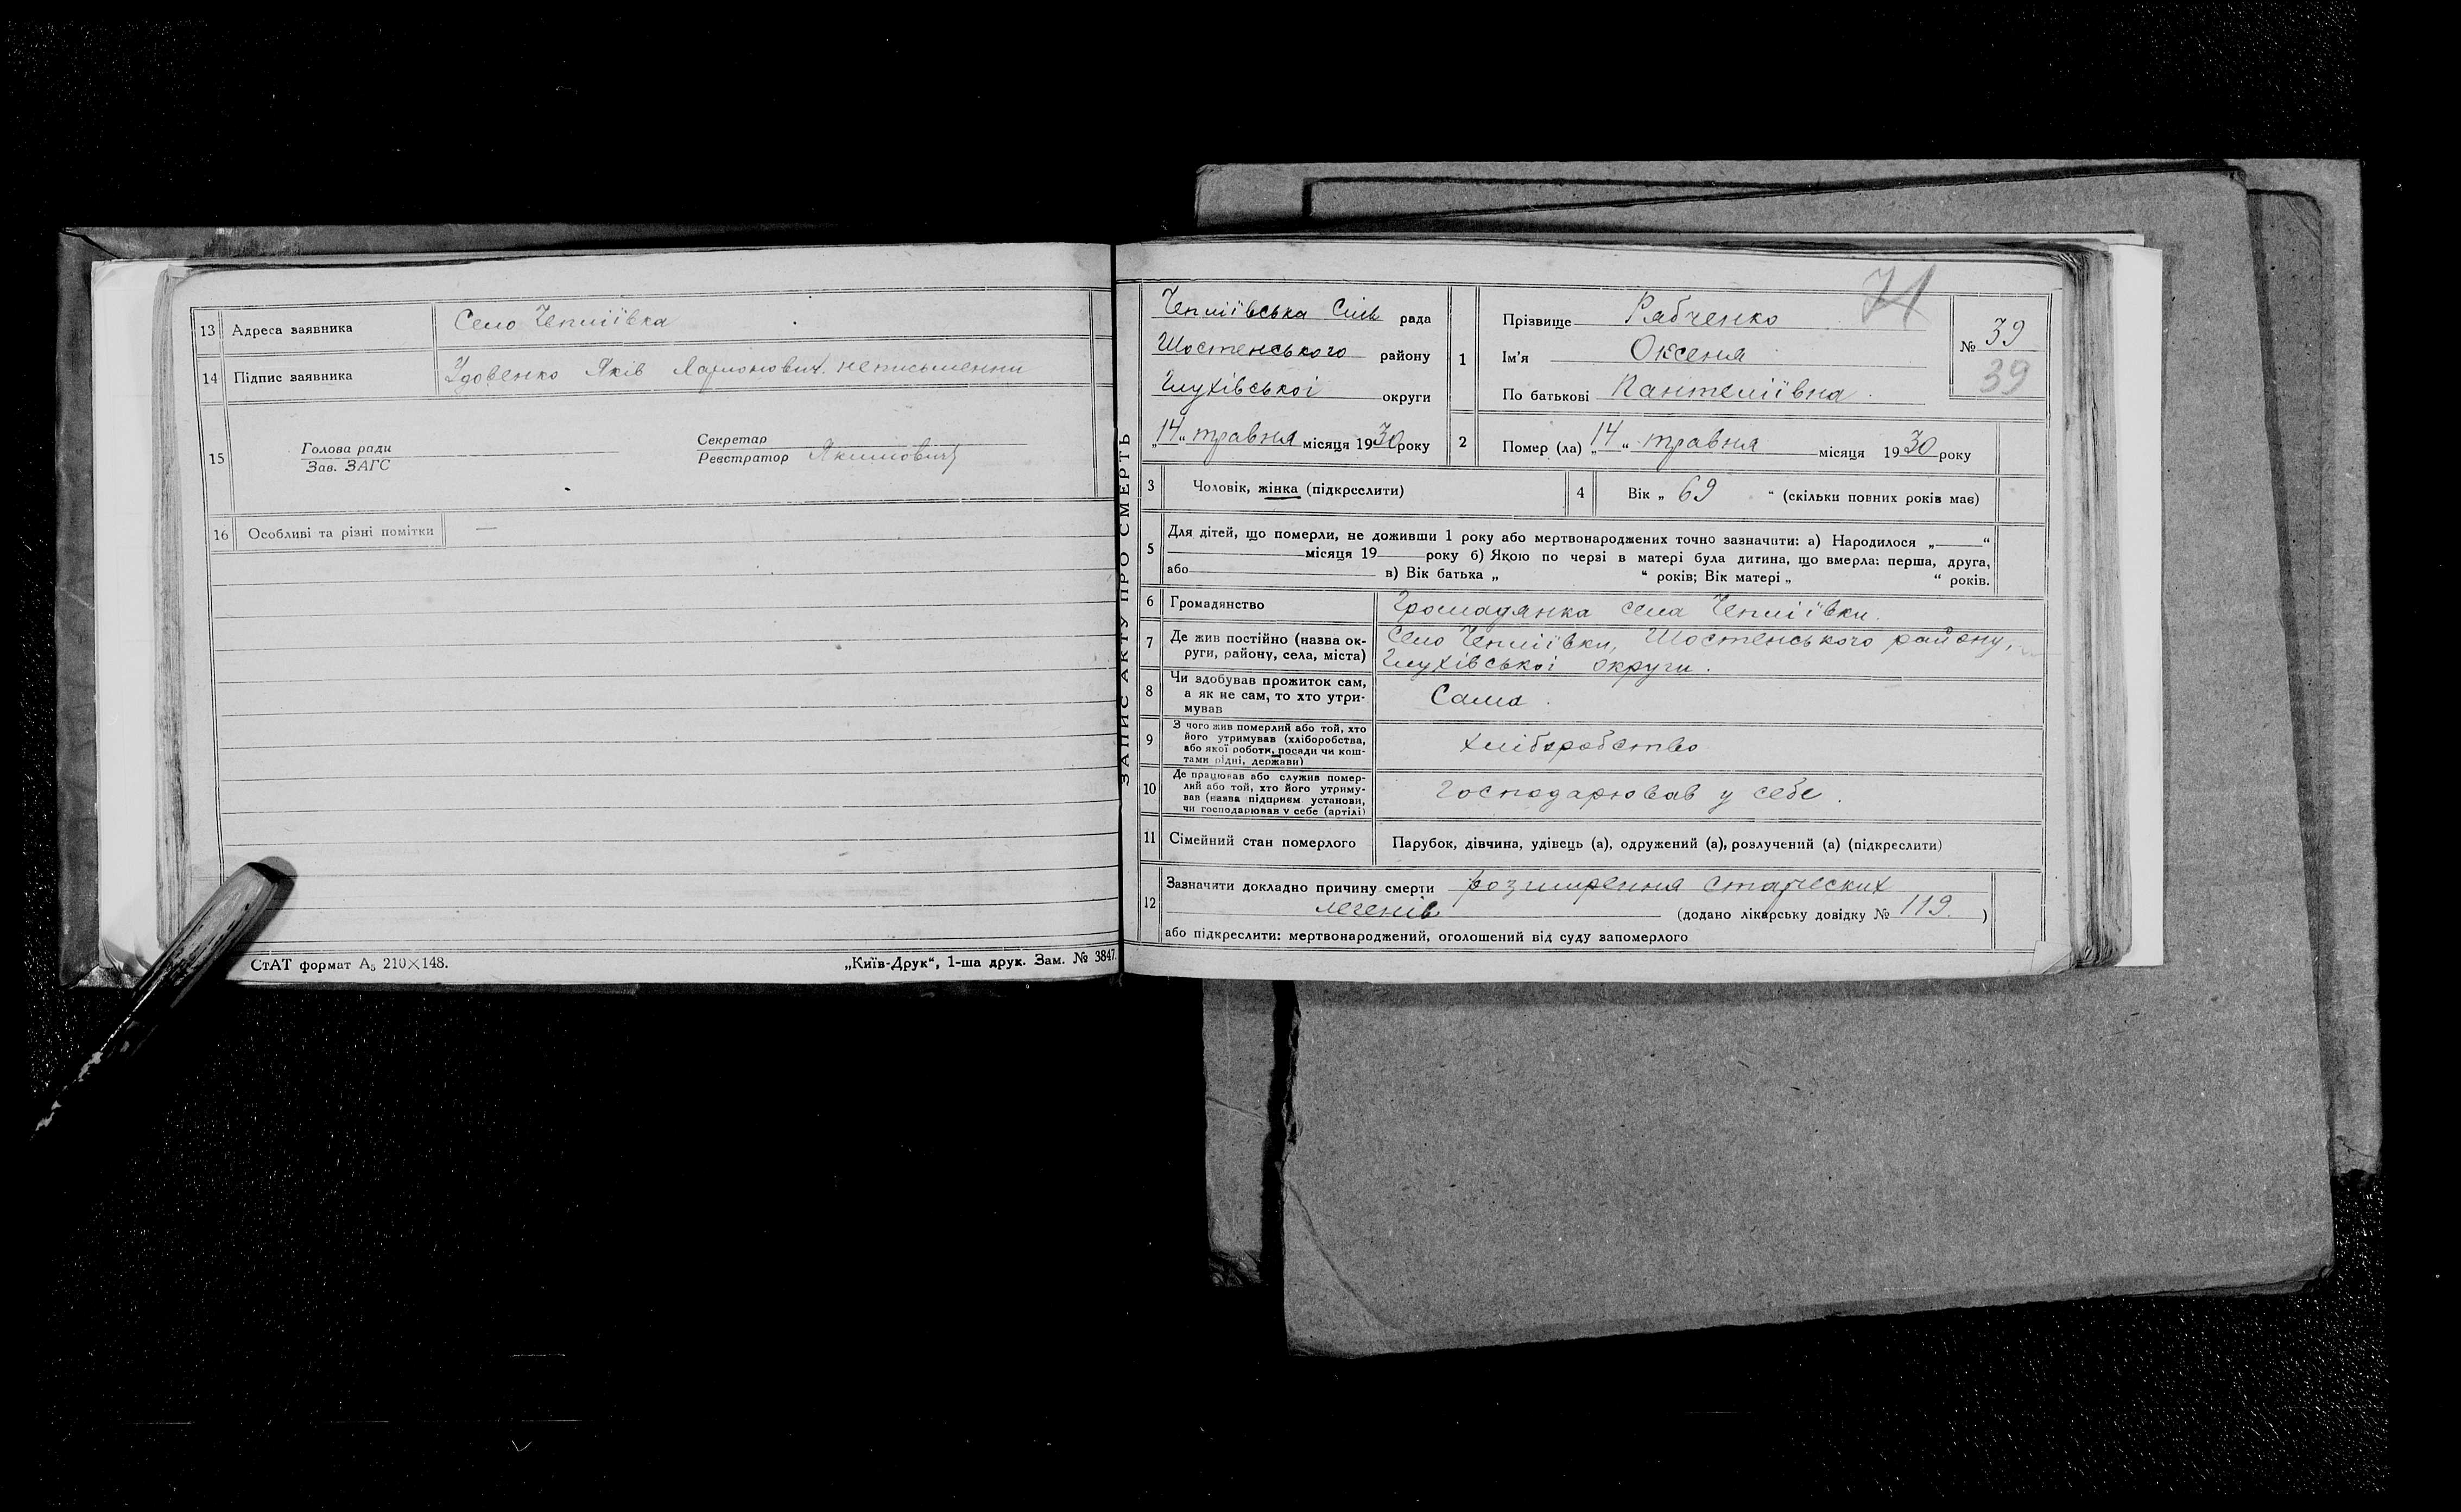 13 Адреса заявника Село Чепліївка
14 Підпис заявника Удовенко Яків Ларіонович неписьменни
15 Голова ради
Зав. ЗАГС
Секретар
Реєстратор Якимович
16 Особливі та різні помітки —
СтАТ формат А₅ 210×148. „Київ-Друк“, 1-ша друк. Зам. № 3847.
ЗАПИС АКТУ ПРО СМЕРТЬ
71
Чепліївська Сіль рада
Шостенського району
Глухівської округи
„14“ травня місяця 1930 року
1 Прізвище Рабченко
Ім'я Оксеня
По батькові Пантеліївна
№ 39
39
2 Помер (ла) „14“ травня місяця 1930 року
3 Чоловік, жінка (підкреслити) 4 Вік „ 69 “ (скільки повних років має)
5 Для дітей, що померли, не доживши 1 року або мертвонароджених точно зазначити: а) Народилося „ “
місяця 19 року б) Якою по черзі в матері була дитина, що вмерла: перша, друга,
або в) Вік батька „ “ років; Вік матері „ “ років.
6 Громадянство Громадянка села Чепліївки.
7 Де жив постійно (назва ок-
руги, району, села, міста) Село Чепліївки, Шостенського району,
Глухівської округи.
8 Чи здобував прожиток сам,
а як не сам, то хто утри-
мував Сама.
9 З чого жив померлий або той, хто
його утримував (хліборобства,
або якої роботи, посади чи кош-
тами рідні, держави) Хліборобство
10 Де працював або служив помер-
лий або той, хто його утриму-
вав (назва підприєм. установи,
чи господарював у себе (артілі) Господарював у себе.
11 Сімейний стан померлого Парубок, дівчина, удівець (а), одружений (а), розлучений (а) (підкреслити)
12 Зазначити докладно причину смерти розширення старческих
легенів (додано лікарську довідку № 119.)
або підкреслити: мертвонароджений, оголошений від суду запомерлого